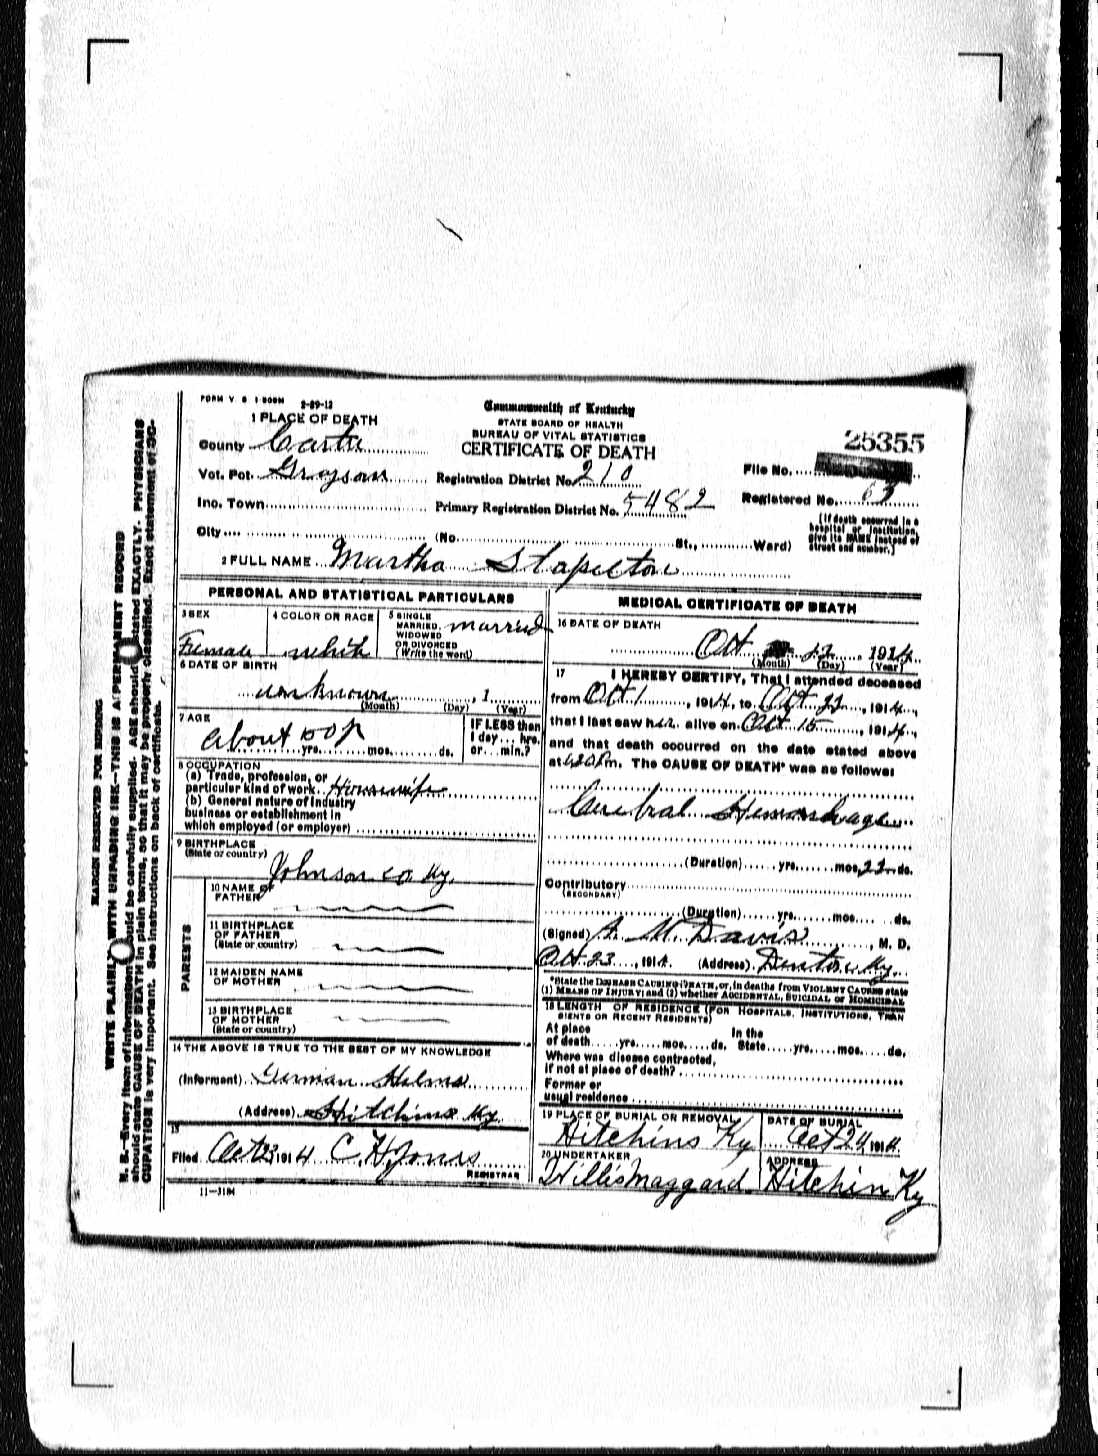 FORM V. S. 1-500M 2-29-12
1 PLACE OF DEATH
County Carter
Vot. Pct. Grayson
Ino. Town
City
Commonwealth of Kentucky
STATE BOARD OF HEALTH
BUREAU OF VITAL STATISTICS
CERTIFICATE OF DEATH
Registration District No. 210
Primary Registration District No. 5482
25355
File No.
Registered No. 63
[If death occurred in a
hospital or institution,
give its NAME instead of
street and number.]
(No. St., Ward)
2 FULL NAME Martha Stapelton
PERSONAL AND STATISTICAL PARTICULARS
3 SEX
Female
4 COLOR OR RACE
white
5 SINGLE
MARRIED,
WIDOWED
OR DIVORCED
(Write the word)
married
6 DATE OF BIRTH
unknown , 1
(Month) (Day) (Year)
7 AGE
about
yrs. mos. ds.
IF LESS than
1 day... hrs.
or... min.?
8 OCCUPATION
(a) Trade, profession, or
particular kind of work Housewife
(b) General nature of industry
business or establishment in
which employed (or employer)
9 BIRTHPLACE
(State or country)
Johnson co Ky.
PARENTS
10 NAME OF
FATHER
11 BIRTHPLACE
OF FATHER
(State or country)
12 MAIDEN NAME
OF MOTHER
13 BIRTHPLACE
OF MOTHER
(State or country)
14 THE ABOVE IS TRUE TO THE BEST OF MY KNOWLEDGE
(Informant) German Helms
(Address) Hitchins Ky.
15
Filed Oct 23 1914 C. H. Jonas
REGISTRAR
11-3184
MEDICAL CERTIFICATE OF DEATH
16 DATE OF DEATH
Oct 22, 1914
(Month) (Day) (Year)
17 I HEREBY CERTIFY, That I attended deceased
from Oct 1, 1914, to Oct 22, 1914,
that I last saw her alive on Oct 15, 1914,
and that death occurred on the date stated above
at m. The CAUSE OF DEATH* was as follows:
Cerebral Hemorrhage
(Duration) yrs. mos. 22 ds.
Contributory
(SECONDARY)
(Duration) yrs. mos. ds.
(Signed) M. Davis, M. D.
Oct 23, 1914 (Address) Denton Ky.
*State the DISEASE CAUSING DEATH, or, in deaths from VIOLENT CAUSES state
(1) MEANS OF INJURY; and (2) whether ACCIDENTAL, SUICIDAL or HOMICIDAL
18 LENGTH OF RESIDENCE (FOR HOSPITALS, INSTITUTIONS, TRAN
SIENTS OR RECENT RESIDENTS)
At place In the
of death yrs. mos. ds. State yrs. mos. ds.
Where was disease contracted,
if not at place of death?
Former or
usual residence
19 PLACE OF BURIAL OR REMOVAL
Hitchins Ky
DATE OF BURIAL
Oct 24, 1914
20 UNDERTAKER
Willis Maggard
ADDRESS
Hitchin Ky
MARGIN RESERVED FOR BINDING
WRITE PLAINLY WITH UNFADING INK—THIS IS A PERMANENT RECORD
N. B.—Every item of information should be carefully supplied. AGE should be stated EXACTLY. PHYSICIANS
should state CAUSE OF DEATH in plain terms, so that it may be properly classified. Exact statement of OC-
CUPATION is very important. See instructions on back of certificate.